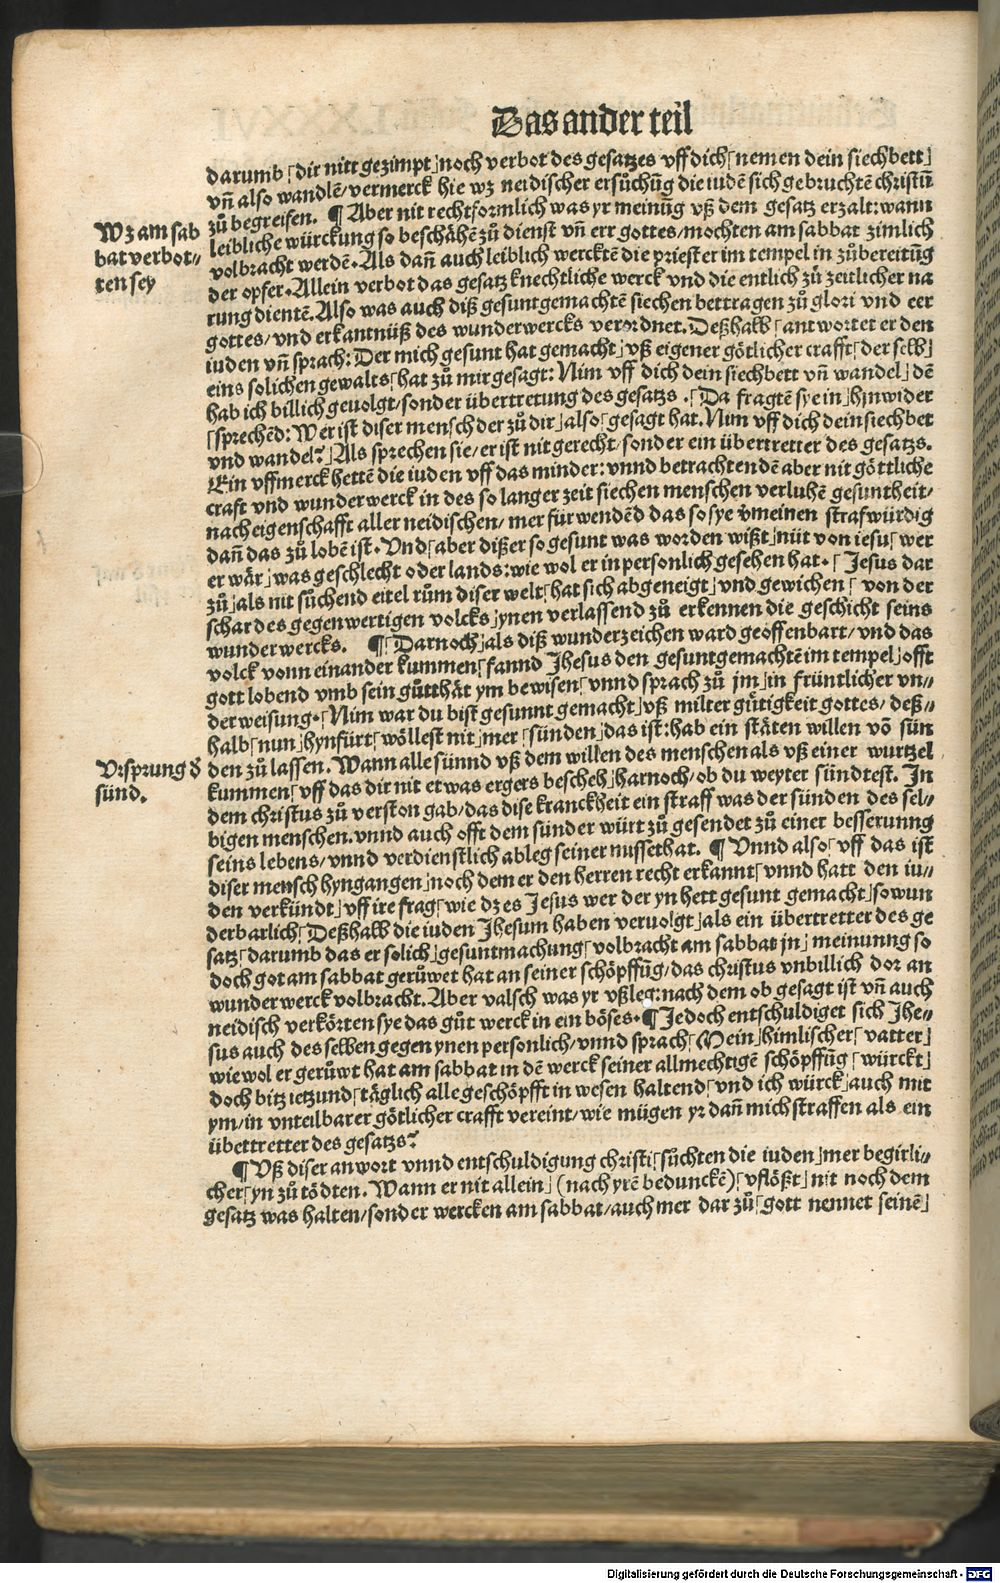 Das ander teil
darumb ⌈dir nitt gezimpt⌋ noch verbot des gesatzes vff dich ⌈nemen dein siechbett⌋
vn̄ also wandlē/ vermerck hie wz neidischer ersůchūg die iudē sich gebruchtē christū
zů begreifen. ¶ Aber nit rechtformlich was yr meinūg vß dem gesatz erzalt: wann
Wz am sab
bat verbot⸗
ten sey
leibliche würckung so beschähē zů dienst vn̄ err gottes/ mochten am sabbat zimlich
volbracht werdē. Als dan̄ auch leiblich wercktē die priester im tempel in zůbereitūg
der opfer. Allein verbot das gesatz knechtliche werck vnd die entlich zů zeitlicher na
rung dientē. Also was auch diß gesuntgemachtē siechen bettragen zů glori vnd eer
gottes/ vnd erkantnüß des wunderwercks verordnet. Deßhalb ⌈antwortet er den
iuden vn̄ sprach: Der mich gesunt hat gemacht⌋ vß eigener götlicher crafft ⌈der selb⌋
eins solichen gewalts ⌈hat zů mir gesagt: Nim vff dich dein siechbett vn̄ wandel⌋ dē
hab ich billich geuolgt/ sonder übertretung des gesatzs. ⌈Da fragtē sye in⌋ hinwider
⌈sprechēd: Wer ist diser mensch der zů dir⌋ also ⌈gesagt hat. Nim vff dich dein siechbet
vnd wandel?⌋ Als sprechen sie/ er ist nit gerecht/ sonder ein übertretter des gesatzs.
Ein vffmerck hettē die iuden vff das minder: vnnd betrachten dē aber nit göttliche
craft vnd wunderwerck in des so langer zeit siechen menschen verluhē gesuntheit/
nach eigenschafft aller neidischen/ mer fürwendēd das so sye v̄meinen strafwürdig
dan̄ das zů lobē ist. Vnd ⌈aber dißer so gesunt was worden wißt⌋ nüt von iesu ⌈wer
er wär⌋ was geschlecht oder lands: wie wol er in personlich gesehen hat. ⌈Jesus dar
zů⌋ als nit sůchend eitel rům diser welt ⌈hat sich abgeneigt⌋ vnd gewichen ⌈von der
schar des gegenwertigen volcks⌋ ynen verlassend zů erkennen die geschicht seins
wunderwercks. ¶ ⌈Darnoch⌋ als diß wunderzeichen ward geoffenbart/ vnd das
volck vonn einander kummen ⌈fannd Jhesus den gesuntgemachtē im tempel⌋ offt
gott lobend vmb sein gůtthät ym bewisen ⌈vnnd sprach zů jm⌋ in früntlicher vn⸗
derweisung. ⌈Nim war du bist gesunnt gemacht⌋ vß milter gütigkeit gottes/ deß⸗
halb ⌈nun⌋ hynfürt ⌈wöllest nit⌋ mer ⌈sünden⌋ das ist: hab ein stäten willen vō sün
Vrsprung d̕
sünd.
den zů lassen. Wann alle sünnd vß dem willen des menschen als vß einer wurtzel
kummen ⌈vff das dir nit etwas ergers bescheh⌋ harnoch/ ob du weyter sündtest. In
dem christus zů verston gab/ das dise kranckheit ein straff was der sünden des sel⸗
bigen menschen. vnnd auch offt dem sünder würt zů gesendet zů einer besserunng
seins lebens/ vnnd verdienstlich ableg seiner missethat. ¶ Vnnd also ⌈vff das ist
diser mensch hyngangen⌋ noch dem er den herren recht erkannt ⌈vnnd hatt den iu⸗
den verkündt⌋ vff ire frag ⌈wie dz es Jesus wer der yn hett gesunt gemacht⌋ so wun
derbarlich ⌈Deßhalb die iuden Jhesum haben veruolgt⌋ als ein übertretter des ge
satz ⌈darumb das er solich⌋ gesuntmachung ⌈volbracht am sabbat jn⌋ meinunng so
doch got am sabbat gerůwet hat an seiner schöpffūg/ das christus vnbillich dor an
wunderwerck volbracht. Aber valsch was yr vßleg: nach dem ob gesagt ist vn̄ auch
neidisch verkörten sye das gůt werck in ein böses. ¶ ⌈Jedoch entschuldiget sich Jhe⸗
sus auch des selben gegen ynen personlich/ vnnd sprach ⌈Mein⌋ himlischer ⌈vatter⌋
wiewol er gerůwt hat am sabbat in dē werck seiner allmechtigē schöpffūg ⌈würckt⌋
doch bitz ietzund ⌈täglich alle geschöpfft in wesen haltend ⌈vnd ich würck⌋ auch mit
ym/ in vnteilbarer götlicher crafft vereint/ wie mügen yr dan̄ mich straffen als ein
übettretter des gesatzs?
¶ Vß diser anwort vnnd entschuldigung christi ⌈sůchten die iuden⌋ mer begirli⸗
cher ⌈yn zů tödten. Wann er nit allein⌋ (nach yrē bedunckē) ⌈vflößt⌋ nit noch dem
gesatz was halten/ sonder wercken am sabbat/ auch mer dar zů ⌈gott nennet seinē⌋
Digitalisierung gefördert durch die Deutsche Forschungsgemeinschaft - DFG